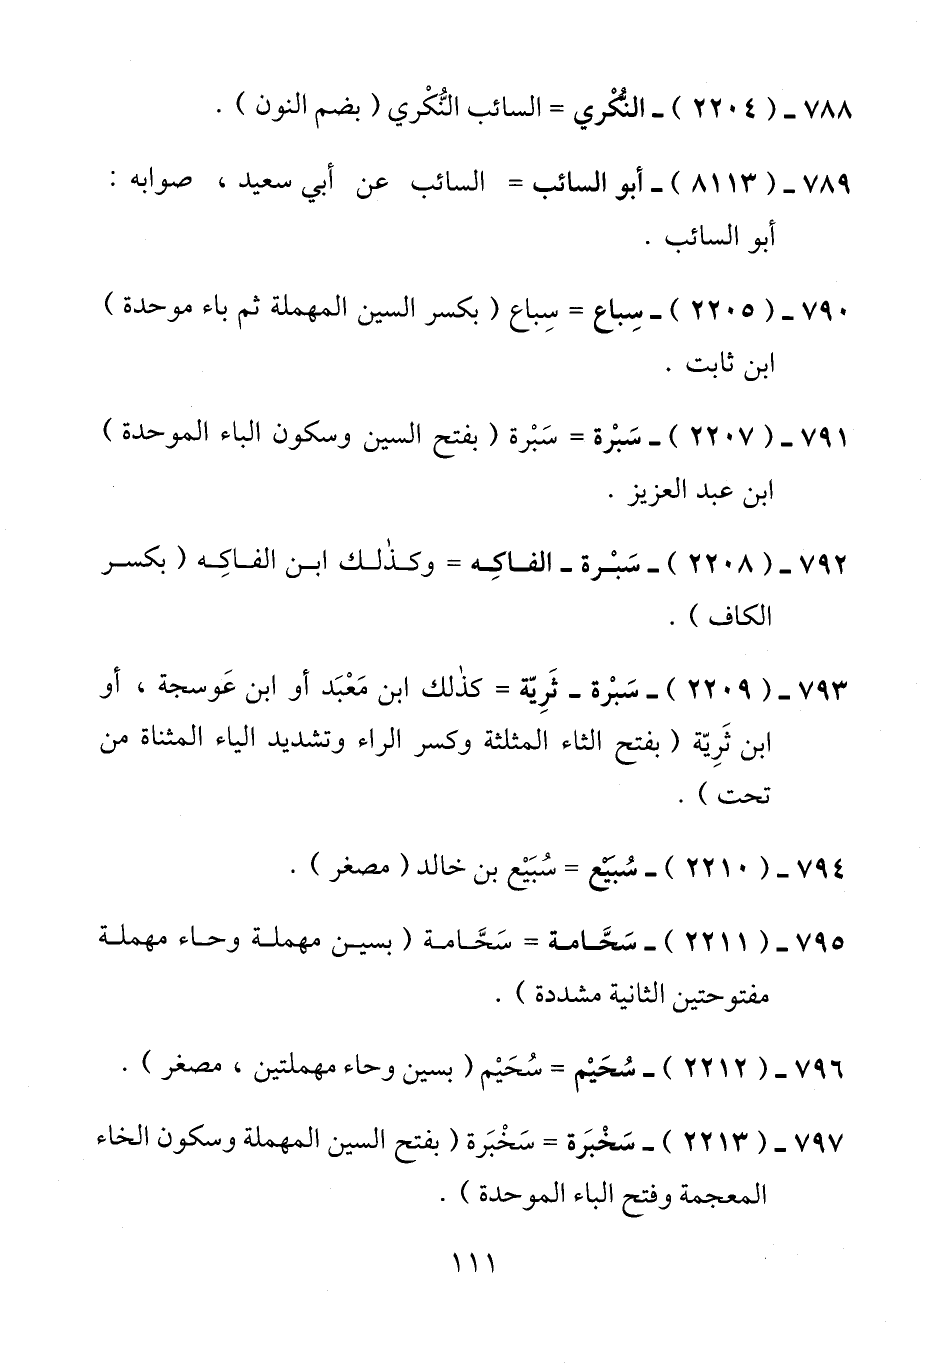 ٧٨٨ ـ ( ٢٢٠٤ ) ـ النُّكْري = السائب النُّكْري ( بضم النون ) .
٧٨٩ ـ ( ٨١١٣ ) ـ أبو السائب = السائب عن أبي سعيد ، صوابه :
أبو السائب .
٧٩٠ ـ ( ٢٢٠٥ ) ـ سِباع = سِباع ( بكسر السين المهملة ثم باء موحدة )
ابن ثابت .
٧٩١ ـ ( ٢٢٠٧ ) ـ سَبْرة = سَبْرة ( بفتح السين وسكون الباء الموحدة )
ابن عبد العزيز .
٧٩٢ ـ ( ٢٢٠٨ ) ـ سَبْرة ـ الفاكِه = وكذٰلك ابن الفاكِه ( بكسر
الكاف ) .
٧٩٣ ـ ( ٢٢٠٩ ) ـ سَبْرة ـ ثَرِيّة = كذٰلك ابن مَعْبَد أو ابن عَوسجة ، أو
ابن ثَرِيّة ( بفتح الثاء المثلثة وكسر الراء وتشديد الياء المثناة من
تحت ) .
٧٩٤ ـ ( ٢٢١٠ ) ـ سُبَيْع = سُبَيْع بن خالد ( مصغر ) .
٧٩٥ ـ ( ٢٢١١ ) ـ سَحَّامة = سَحَّامة ( بسين مهملة وحاء مهملة
مفتوحتين الثانية مشددة ) .
٧٩٦ ـ ( ٢٢١٢ ) ـ سُحَيْم = سُحَيْم ( بسين وحاء مهملتين ، مصغر ) .
٧٩٧ ـ ( ٢٢١٣ ) ـ سَخْبَرة = سَخْبَرة ( بفتح السين المهملة وسكون الخاء
المعجمة وفتح الباء الموحدة ) .
١١١